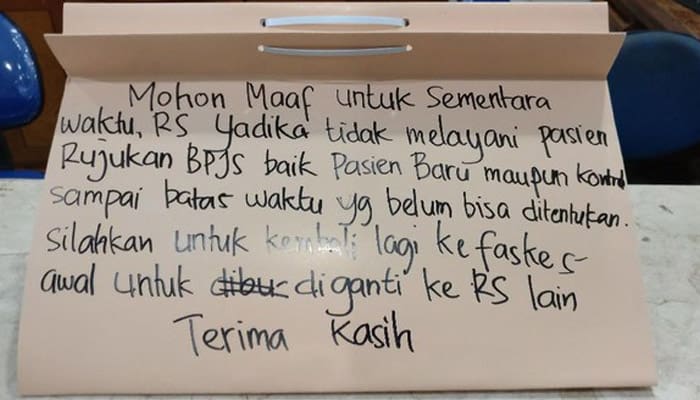 Mohon Maaf untuk Sementara
waktu, RS Yadika tidak melayani pasien
Rujukan BPJS baik Pasien Baru maupun kontrol
sampai batas waktu yg belum bisa ditentukan.
Silahkan untuk kembali lagi ke faskes
awal untuk dibur diganti ke RS lain
Terima Kasih